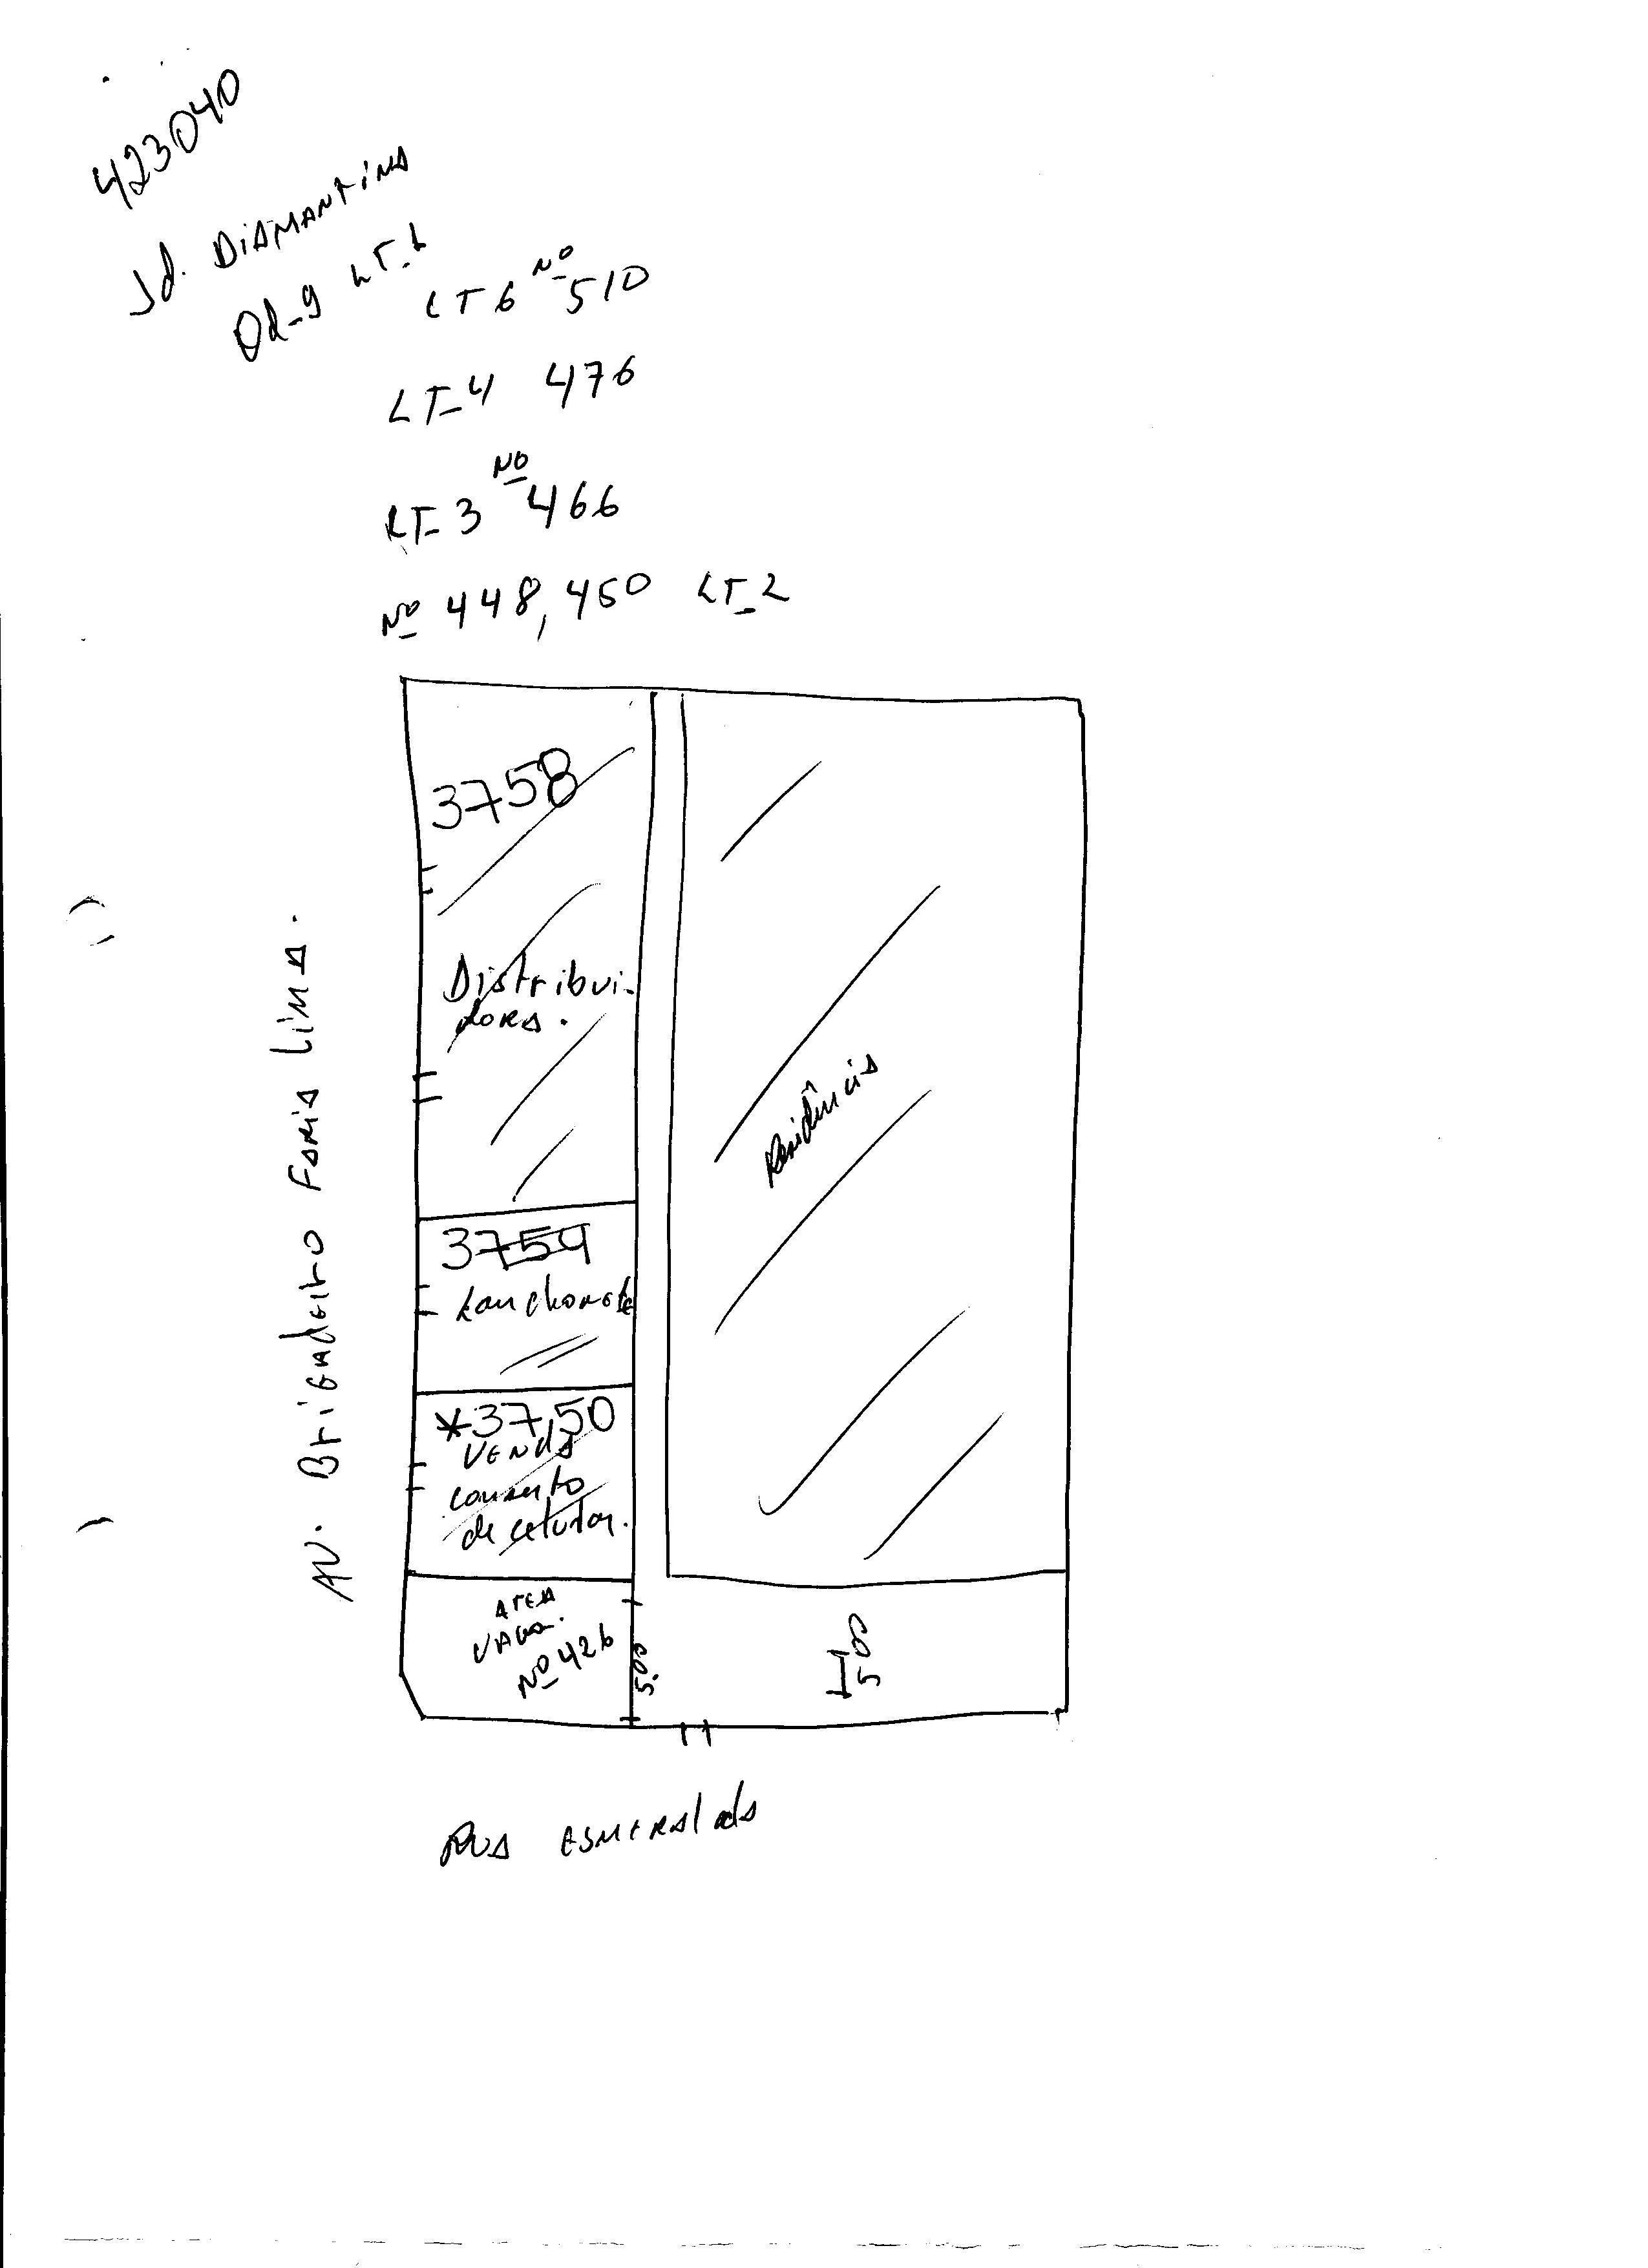 423040
Jd. DIAMANTINA
Qd-9 LT-1
LT 6 Nº 510
LT-4 476
LT-3 Nº 466
Nº 448, 450 LT-2
3758
Distribui-
dora.
3754
Lanchonete
*37,50
Venda
conserto
de celular.
Area
Vaga.
Nº 426
5.00
5,00
Residência
Av. Brigadeiro Faria Lima.
Rua Esmeralda